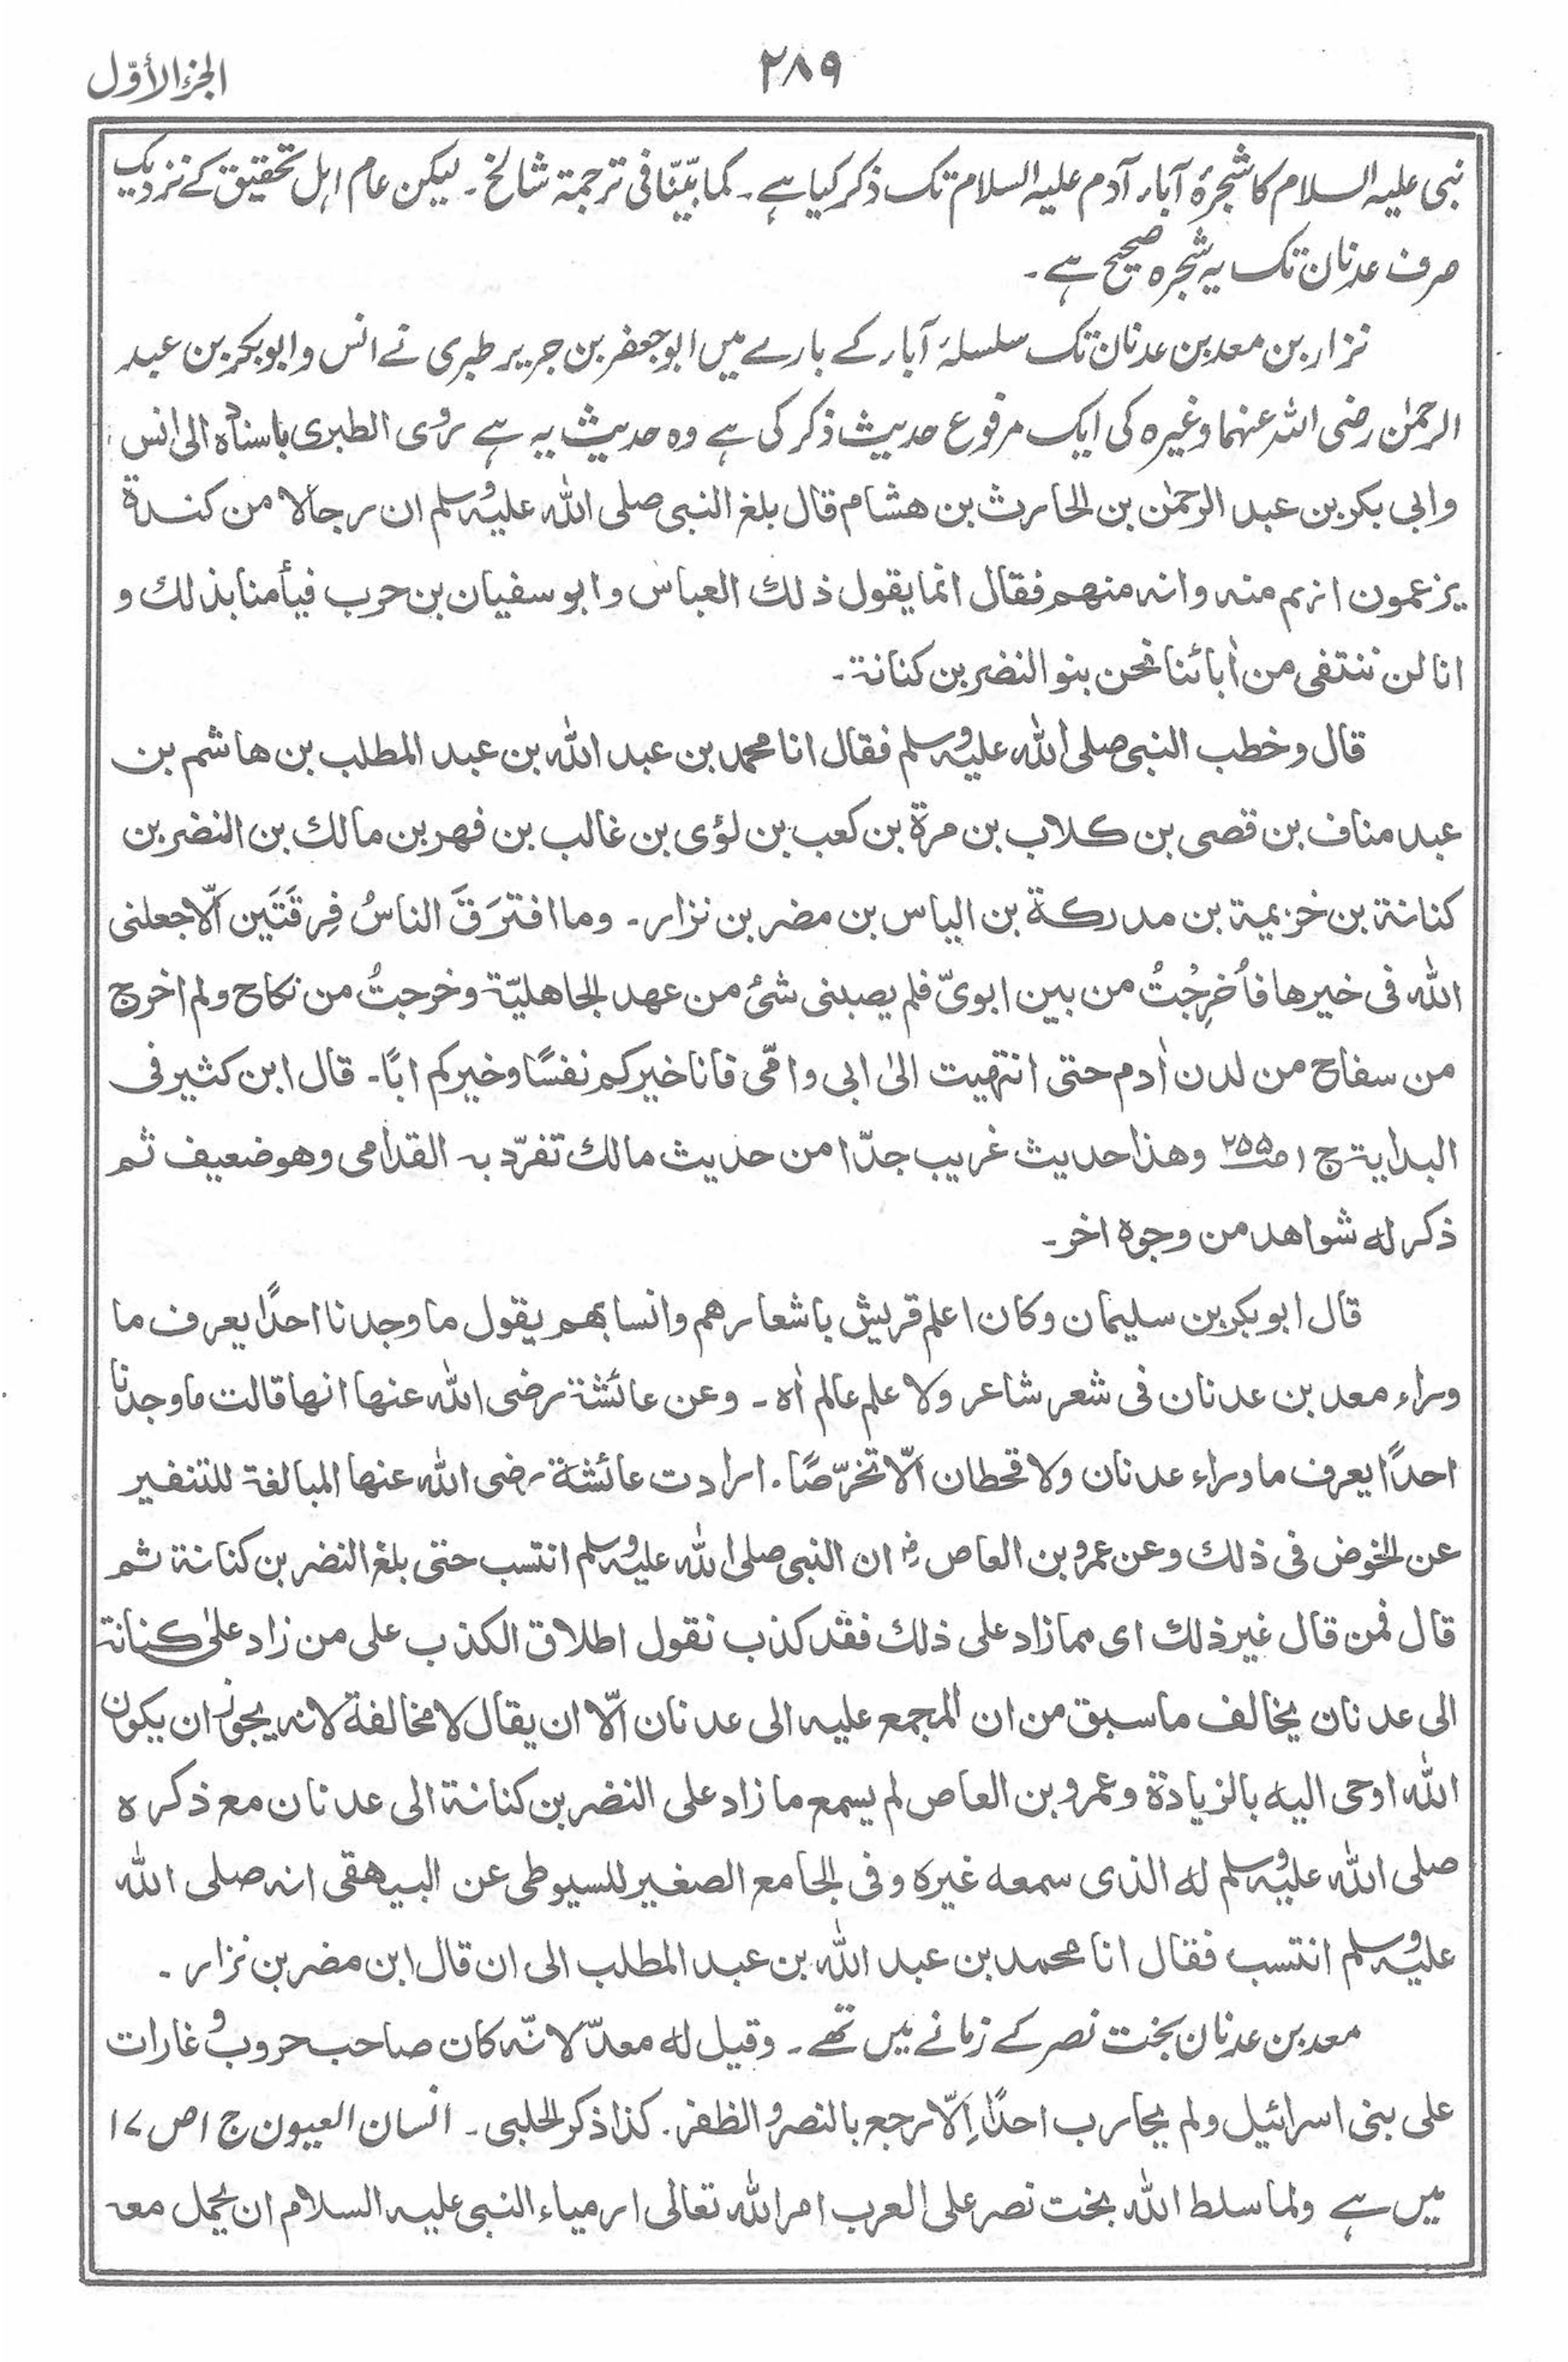 الجزء الأوّل
٢٨٩
نبی علیہ السلام کا شجرۂ آباء آدم علیہ السلام تک ذکر کیا ہے۔ کما بیّنّا فی ترجمۃ شالخ۔ لیکن عام اہل تحقیق کے نزدیک
صرف عدنان تک یہ شجرہ صحیح ہے۔
نزار بن معد بن عدنان تک سلسلۂ آباء کے بارے میں ابوجعفر بن جریر طبری نے انس و ابوبکر بن عبد
الرحمٰن رضی اللہ عنہما وغیرہ کی ایک مرفوع حدیث ذکر کی ہے وہ حدیث یہ ہے روی الطبری باسنادہ الی انس
وابی بکر بن عبد الرحمٰن بن الحارث بن ھشام قال بلغ النبی صلی اللہ علیہ وسلم ان رجالا من کندۃ
یزعمون انہم منہ وانہ منھم فقال انما یقول ذلك العباس وابو سفیان بن حرب فیأمنا بذلك و
انا لن ننتفی من اٰبائنا نحن بنو النضر بن کنانۃ۔
قال وخطب النبی صلی اللہ علیہ وسلم فقال انا محمد بن عبد اللہ بن عبد المطلب بن ھاشم بن
عبد مناف بن قصی بن کلاب بن مرۃ بن کعب بن لؤی بن غالب بن فھر بن مالك بن النضر بن
کنانۃ بن خزیمۃ بن مدرکۃ بن الیاس بن مضر بن نزار۔ وما افترَقَ الناسُ فِرقَتَین اِلّا جعلنی
اللہ فی خیرھا فاُخرِجتُ من بین ابویّ فلم یصبنی شئ من عھد الجاھلیّۃ وخرجتُ من نکاح ولم اخرج
من سفاح من لدن اٰدم حتی انتھیت الیٰ ابی وامّی فانا خیرکم نفسًا وخیرکم ابًا۔ قال ابن کثیر فی
البدایۃ ج ١ ص ٢٥٥ وھذا حدیث غریب جدّا من حدیث مالك تفرّد بہ القدامی وھو ضعیف ثم
ذکر لہ شواھد من وجوہ اخر۔
قال ابو بکر بن سلیمان وکان اعلم قریش باشعارھم وانسابھم یقول ما وجدنا احدًا یعرف ما
وراء معد بن عدنان فی شعر شاعر ولا علم عالم اٰہ۔ وعن عائشۃ رضی اللہ عنہا انھا قالت ما وجدنا
احدًا یعرف ما وراء عدنان ولا قحطان اِلّا تخرّصًا۔ ارادت عائشۃ رضی اللہ عنھا المبالغۃ للتنفیر
عن الخوض فی ذلك وعن عمرو بن العاص رضـ ان النبی صلی اللہ علیہ وسلم انتسب حتی بلغ النضر بن کنانۃ ثم
قال فمن قال غیر ذلك ای مما زاد علی ذلك فقد کذب نقول اطلاق الکذب علی من زاد علیٰ کنانۃ
الی عدنان یخالف ما سبق من ان المجمع علیہ الی عدنان اِلّا ان یقال لا مخالفۃ لانہ یجوز ان یکون
اللہ اوحی الیہ بالزیادۃ وعمرو بن العاص لم یسمع ما زاد علی النضر بن کنانۃ الی عدنان مع ذکرہ
صلی اللہ علیہ وسلم لہ الذی سمعہ غیرہ وفی الجامع الصغیر للسیوطی عن البیھقی انہ صلی اللہ
علیہ وسلم انتسب فقال انا محمد بن عبد اللہ بن عبد المطلب الی ان قال ابن مضر بن نزار۔
معد بن عدنان بخت نصر کے زمانے میں تھے۔ وقیل لہ معدّ لانّہ کان صاحب حروب و غارات
علی بنی اسرائیل ولم یحارب احدًا اِلّا رجع بالنصر والظفر۔ کذا ذکر الحلبی۔ انسان العیون ج ١ ص ١٧
میں ہے ولما سلط اللہ بخت نصر علی العرب امر اللہ تعالی ارمیاء النبی علیہ السلام ان یحمل معہ